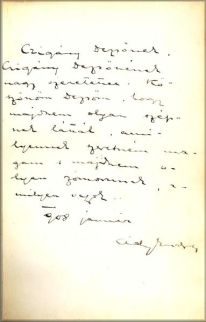 Czigány Dezsőnek,
Czigány Dezsőének
nagy szeretettel. Kö-
szönöm Dezsőm, hogy
majdnem olyan szép-
nek látál, ami-
lyennek szeretném ma-
gam s majdnem o-
lyan szomorunak, a-
milyen vagyok.
908 január
Ady Endre